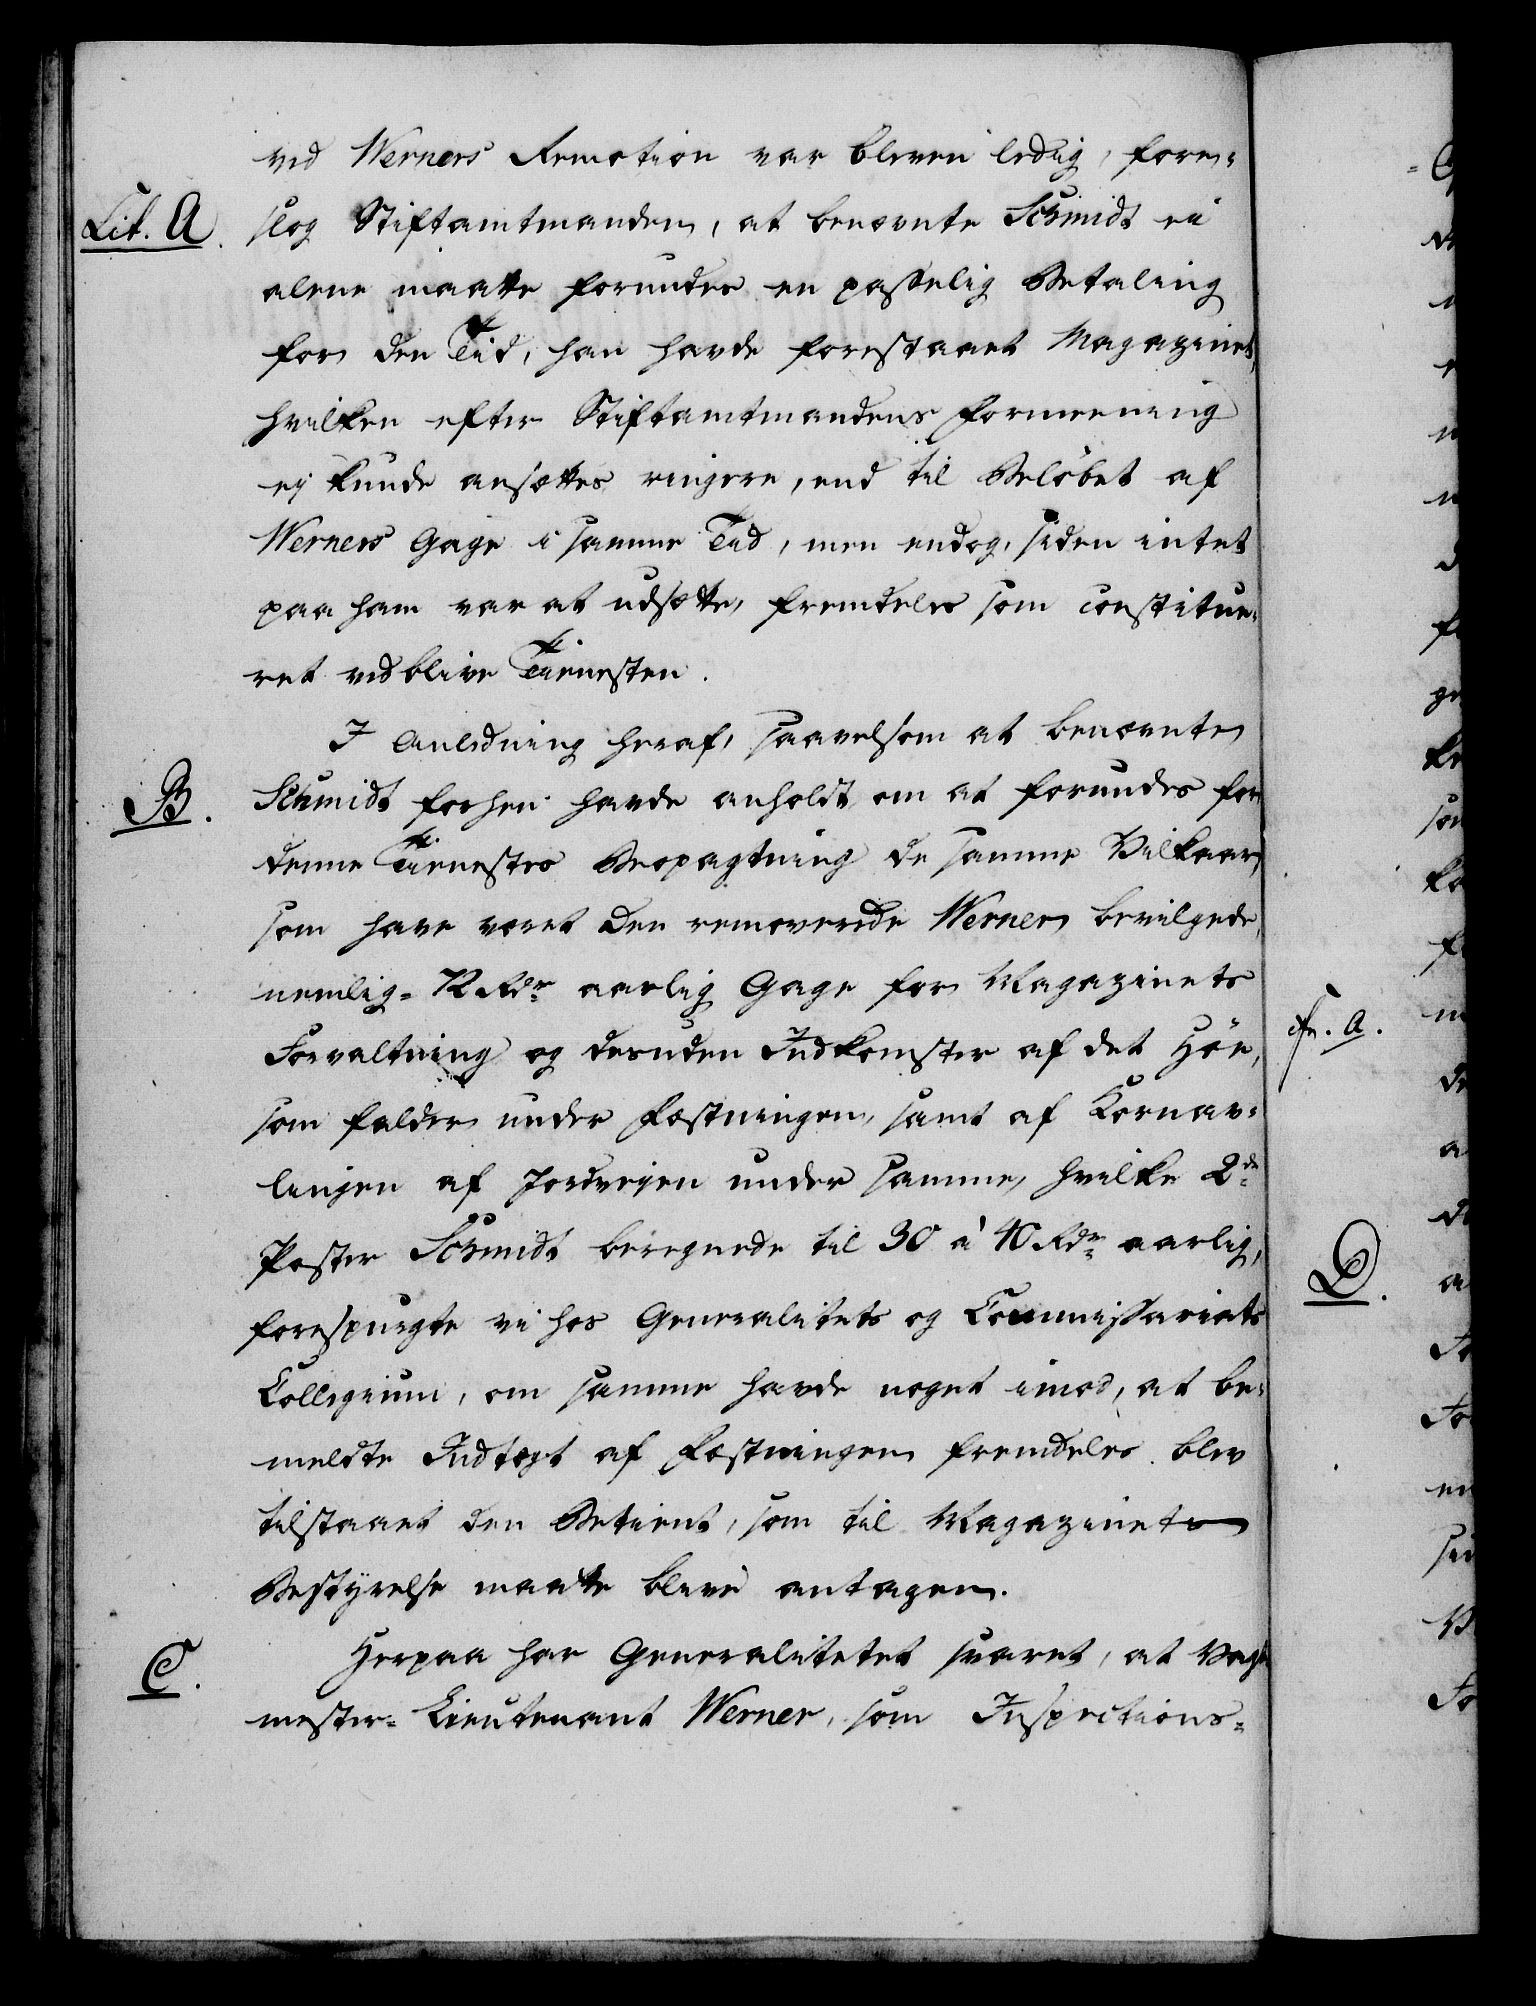 ved Werners Remotion var bleven ledig, fore-
Lit. A. slog Stiftamtmanden, at benævnte Schmidt ei
alene maatte forundes en passelig Betaling
for den Tid, han havde forestaaet Magazinet,
hvilken efter Stiftamtmandens Formeening
ej kunde ansættes ringere, end til Beløbet af
Werners Gage i samme Tid, men endog, siden intet
paa ham var at udsætte, fremdeles som constitue-
ret vedblive Tienesten.
I Anledning heraf, saavelsom at benævnte
B. Schmidt forhen havde anholdt om at forundes for
denne Tienestes Beopagtning de samme Vilkaar,
som have været den removerede Werner bevilgede,
nemlig 72 Rdr aarlig Gage for Magazinets
Forvaltning og desuden Indkomster af det Høe,
som falder under Fæstningen, samt af Kornav-
lingen af Jordvejen under samme, hvilke 2de
Poster Schmidt beregnede til 30 à 40 Rdr aarlig,
forespurgte vi hos Generalitets og Commissariats
Collegium, om samme havde noget imod, at be-
meldte Indtægt af Fæstningen fremdeles blev
tilstaaet den Betient, som til Magazinets
Bestyrelse maatte blive antagen.
C. Herpaa har Generalitetet svaret, at Vagt-
mester-Lieutenant Werner, som Inspections-
cfr. A.
D.